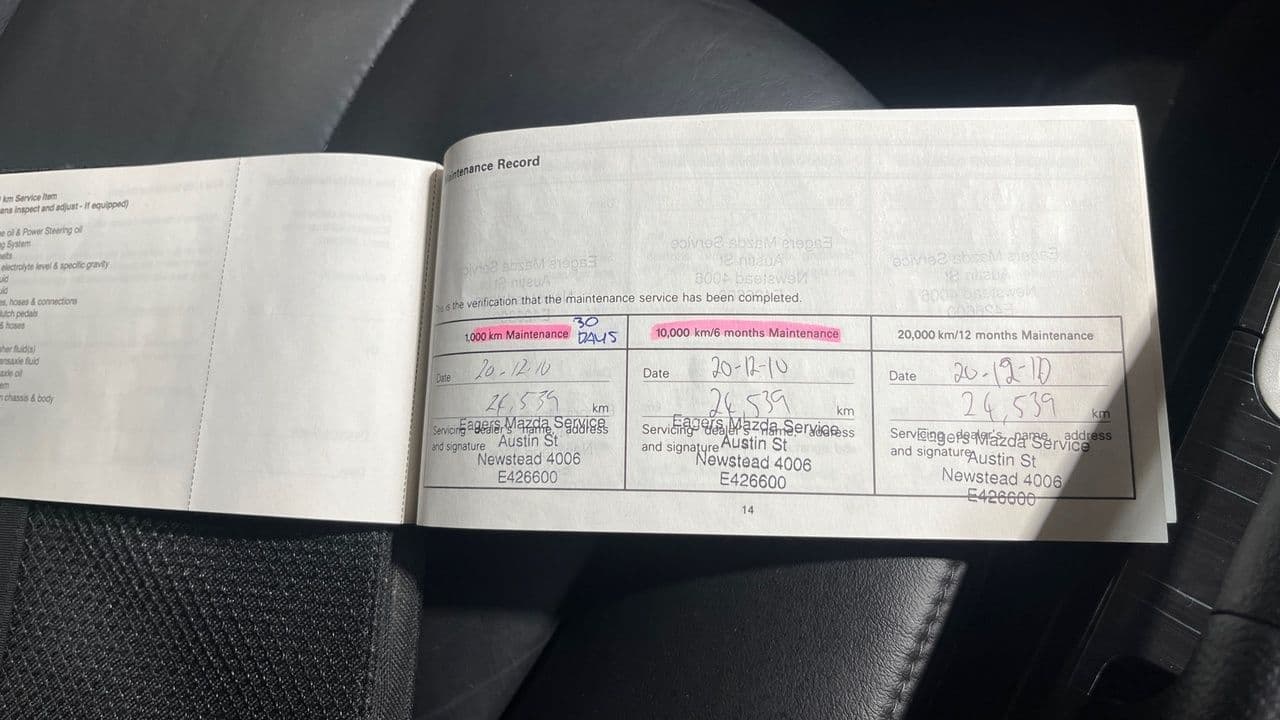 km Service Item
ans inspect and adjust - If equipped)
oil & Power Steering oil
System
electrolyte level & specific gravity
es, hoses & connections
utch pedals
& hoses
her fluid(s)
ansaxle fluid
axle oil
chassis & body
intenance Record
This is the verification that the maintenance service has been completed.
1,000 km Maintenance 30 DAYS
Date 20-12-10
24,539 km
Servicing dealer's name, address
and signature
Eagers Mazda Service
Austin St
Newstead 4006
E426600
10,000 km/6 months Maintenance
Date 20-12-10
24,539 km
Servicing dealer's name, address
and signature
Eagers Mazda Service
Austin St
Newstead 4006
E426600
20,000 km/12 months Maintenance
Date 20-12-10
24,539 km
Servicing dealer's name, address
and signature
Eagers Mazda Service
Austin St
Newstead 4006
E426600
14